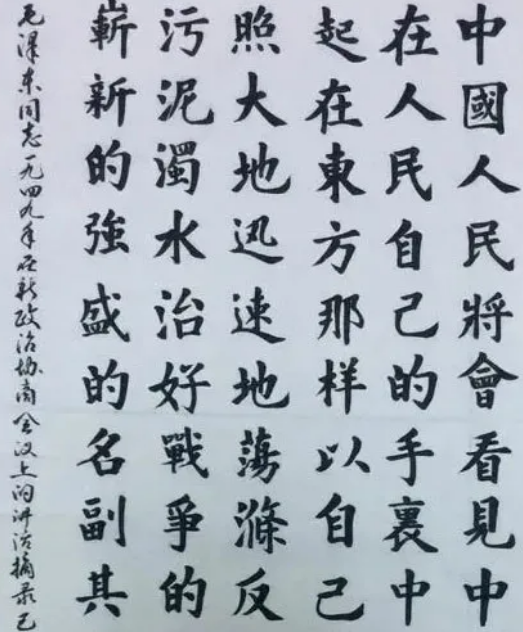 中國人民將會看見中
在人民自己的手裏中
起在東方那样以自己
照大地迅速地蕩滌反
污泥濁水治好戰爭的
嶄新的強盛的名副其
毛澤东同志一九四九年在新政治协商会议上的讲话摘录己